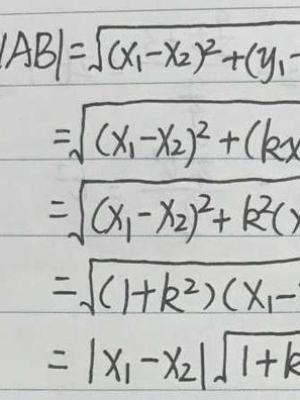 |AB|=√(x₁-x₂)²+(y₁-
=√(x₁-x₂)²+(kx
=√(x₁-x₂)²+k²(
=√(1+k²)(x₁-
=|x₁-x₂|√1+k